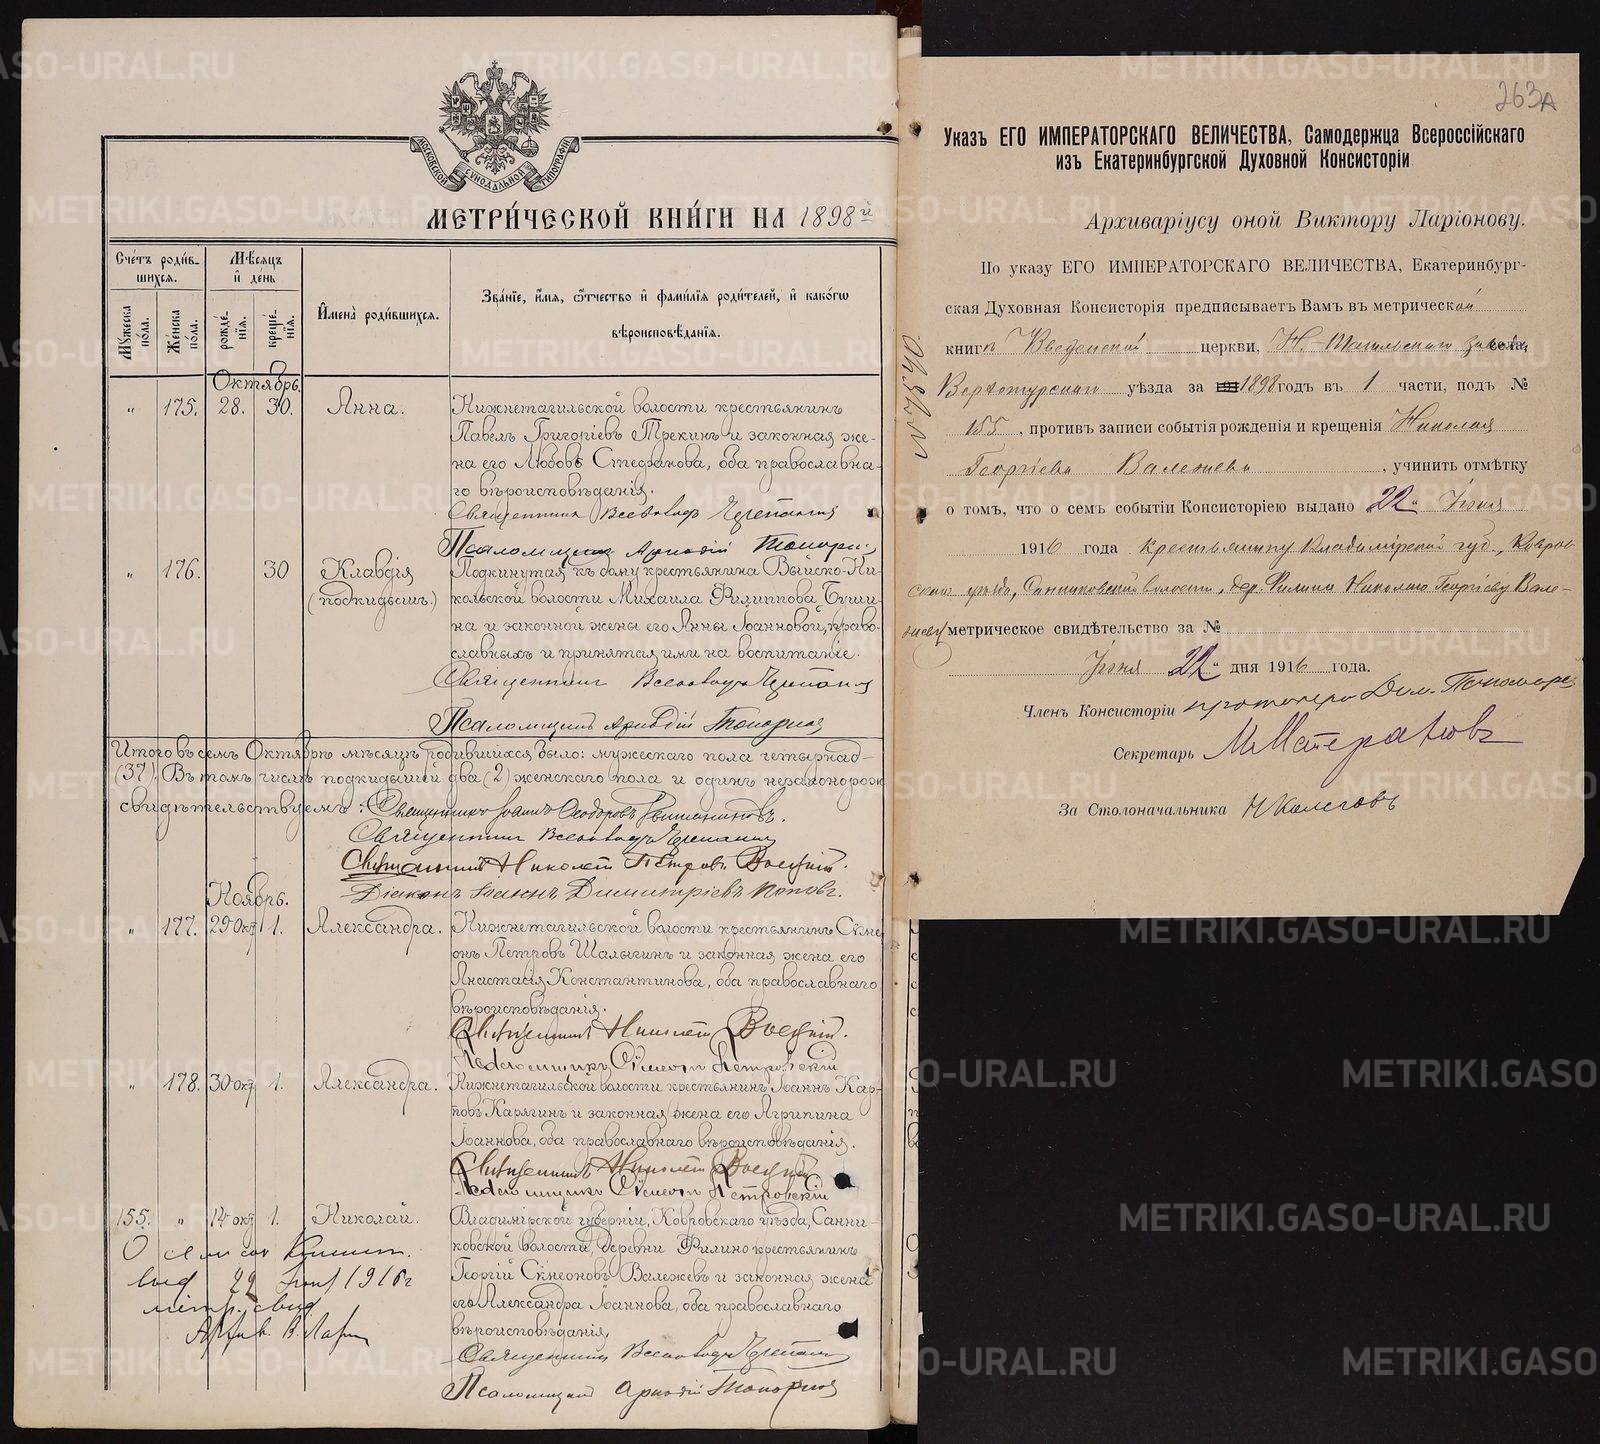 МОСКОВСКОЙ СѴНОДАЛЬНОЙ ТИПОГРАФІИ
МЕТРИ́ЧЕСКОЙ КНИ́ГИ НА 1898й
Сче́тъ роди́вшихся.
Мѣ́сяцъ и҆ де́нь
И҆мена̀ роди́вшихся.
Зва́нїе, и҆́мя, ѻ҆́тчество и҆ фами́лїя роди́телей, и҆ како́гѡ
вѣроисповѣ́данїя.
Му́жеска по́ла.
Же́нска по́ла.
рожде́нїя.
креще́нїя.
Октябрь.
„ 175. 28. 30. Анна.
Нижнетагильской волости крестьянинъ
Павелъ Григоріевъ Трекинъ и законная же-
на его Любовь Стефанова, оба православна-
го вѣроисповѣданія.
Священникъ Всеволодъ Черепанов
Псаломщикъ Аркадій Топорков
„ 176. 30 Клавдія
(подкидыш.)
Подкинутая къ дому крестьянина Выйско-Ни-
кольской волости Михаила Филиппова Буши-
на и законной жены его Анны Іоанновой, право-
славныхъ и принятая ими на воспитаніе.
Священникъ Всеволодъ Черепанов
Псаломщикъ Аркадій Топорков
Итого въ семъ Октябрѣ мѣсяцѣ родившихся было: мужескаго пола четырнад-
(37). Въ томъ числѣ подкидышей два (2) женскаго пола и одинъ незаконорож
свидѣтельствуемъ: Священникъ Іоаннъ Ѳеодоровъ
Священникъ Всеволодъ Черепанов
Священникъ Николай Петровъ
Діаконъ Іоаннъ Димитріевъ Поповъ.
Ноябрь.
„ 177. 29 Окт 1. Александра.
Нижнетагильской волости крестьянинъ Сѵме-
онъ Петровъ Шалыгинъ и законная жена его
Анастасія Константинова, оба православнаго
вѣроисповѣданія.
Священникъ Николай
Псаломщикъ Сѵмеонъ Петровскій
„ 178. 30 окт 1. Александра.
Нижнетагильской волости крестьянинъ Іоаннъ Кар-
повъ Карягинъ и законная жена его Агрипина
Іоаннова, оба православнаго вѣроисповѣданія.
Священникъ Николай
Псаломщикъ Сѵмеонъ Петровскій
155. „ 14 окт 1. Николай.
Владимірской губерніи, Ковровскаго уѣзда, Санни-
ковской волости, деревни Филино крестьянинъ
Георгій Сѵмеоновъ Валежевъ и законная жена
его Александра Іоаннова, оба православнаго
вѣроисповѣданія.
Священникъ Всеволодъ Черепанов
Псаломщикъ Аркадій Топорков
О сем
выд 22 1916 г
метр. свид.
Архив. В. Ларион
263А
Указъ ЕГО ИМПЕРАТОРСКАГО ВЕЛИЧЕСТВА, Самодержца Всероссійскаго
изъ Екатеринбургской Духовной Консисторіи
Архиваріусу оной Виктору Ларіонову.
По указу ЕГО ИМПЕРАТОРСКАГО ВЕЛИЧЕСТВА, Екатеринбург-
ская Духовная Консисторія предписываетъ Вамъ въ метрической
книгѣ Введенской церкви, Н. Тагильскаго завода села,
Верхотурскаго уѣзда за 1898 годъ въ 1 части, подъ №
155, противъ записи событія рожденія и крещенія Николая
Георгіева Валежева, учинить отмѣтку
о томъ, что о семъ событіи Консисторіею выдано 22 Іюня
1916 года крестьянину Владимірской губ., Ковров
скаго уѣзда, Санниковской волости, дер. Филина Николаю Георгіеву Вале-
жеву метрическое свидѣтельство за №
Іюня 22 дня 1916 года.
Членъ Консисторіи протоіерей Дим. Пономарев
Секретарь
За Столоначальника Н Колеговъ
METRIKI.GASO-URAL.RU